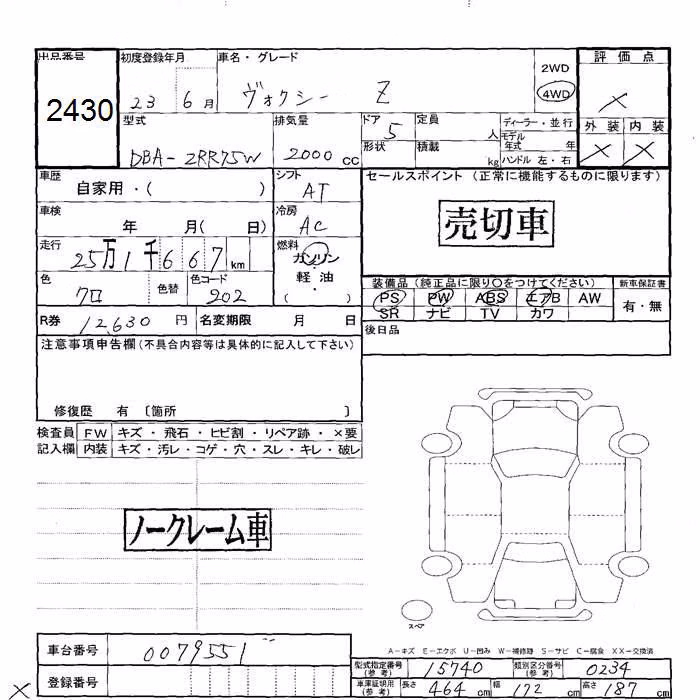 出品番号 初度登録年月 車名・グレード 評価点
2430 23 6月 ヴォクシー Z 2WD 4WD ×
型式 排気量 ドア 定員 ディーラー・並行 外装 内装
DBA-ZRR75W 2000cc 5 人 モデル年式 年 × ×
形状 積載 kg ハンドル 左・右
車歴 シフト セールスポイント (正常に機能するものに限ります)
自家用・( ) AT
車検 冷房 売切車
年 月( 日) AC
走行 燃料
25万1千667km ガソリン
軽・油
( )
色 色替 色コード 装備品(純正品に限り○をつけてください) 新車保証書
クロ 202 PS PW ABS エアB AW 有・無
SR ナビ TV カワ
R券 12,630円 名変期限 月 日 後日品
注意事項申告欄(不具合内容等は具体的に記入して下さい)
修復歴 有 〔箇所 〕
検査員 FW キズ・飛石・ヒビ割・リペア跡・×要
記入欄 内装 キズ・汚レ・コゲ・穴・スレ・キレ・破レ
ノークレーム車
スペア
A-キズ E-エクボ U-凹み W-補修跡 S-サビ C-腐食 XX-交換済
車台番号 0079551
型式指定番号(参考) 15740 類別区分番号(参考) 0234
登録番号
車庫証明用(参考) 長さ 464cm 幅 172cm 高さ 187cm
×